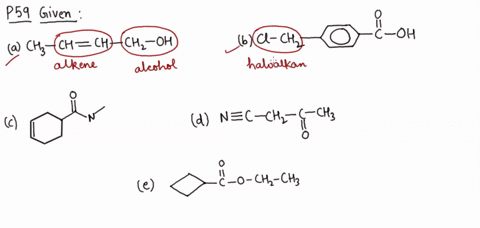 P59 Given :
(a) CH₃-CH=CH-CH₂-OH
alkene alcohol
(b) Cl-CH₂ O C-OH
haloalkan
(c) O N
(d) N≡C-CH₂-C-CH₃
O
(e) O
C-O-CH₂-CH₃